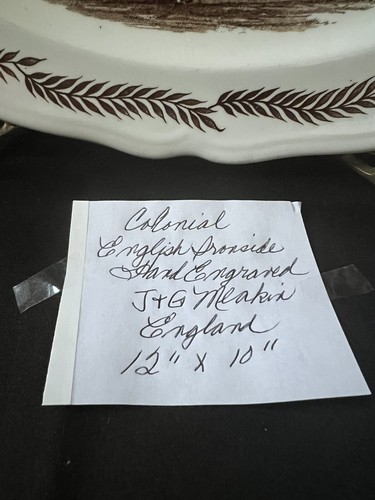 Colonial
English Ironside
Hand Engraved
J+G Meakin
England
12" x 10"